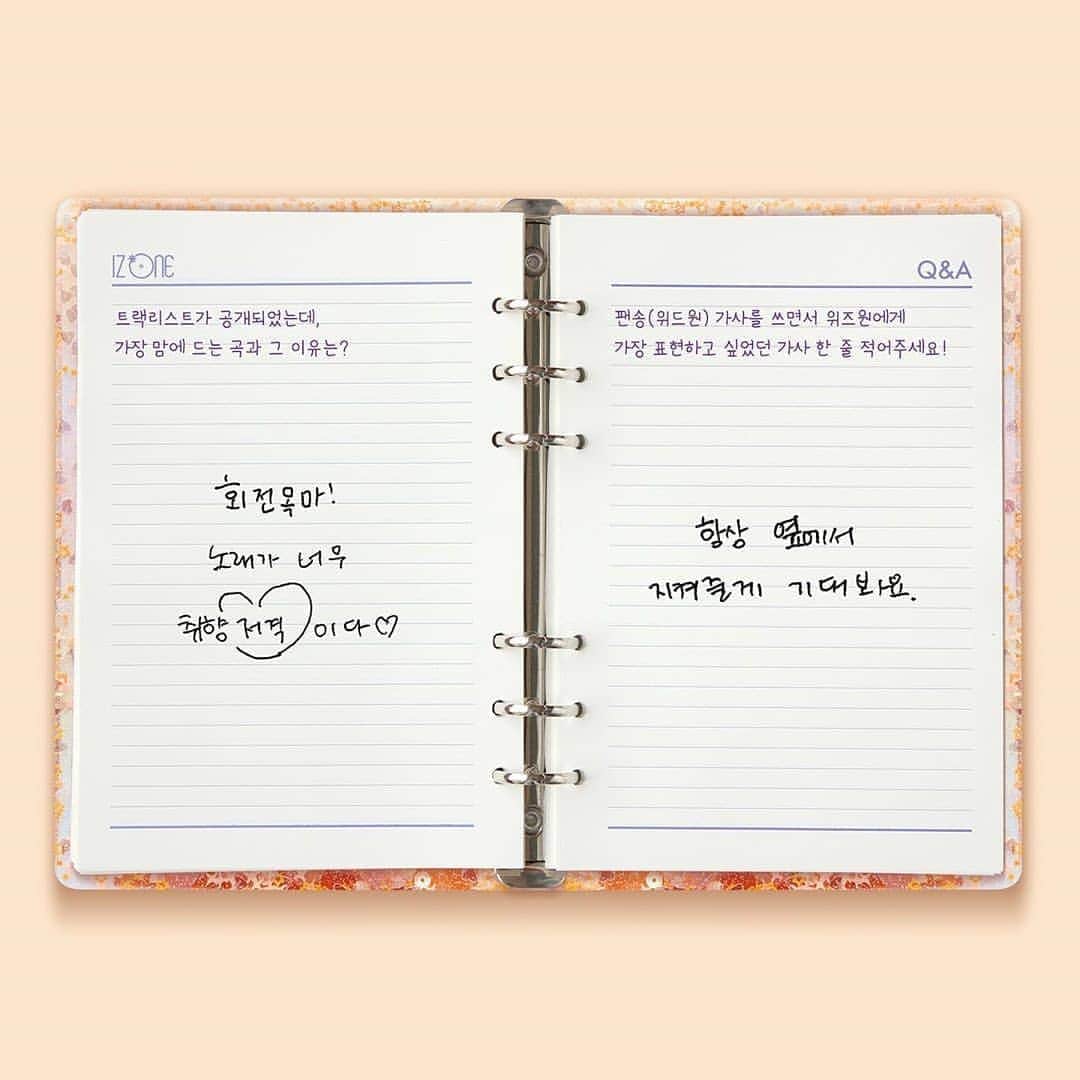 IZ*ONE
트랙리스트가 공개되었는데,
가장 맘에 드는 곡과 그 이유는?
회전목마!
노래가 너무
취향저격이다♡
Q&A
팬송(위드원) 가사를 쓰면서 위즈원에게
가장 표현하고 싶었던 가사 한 줄 적어주세요!
항상 옆에서
지켜줄게 기대봐요.